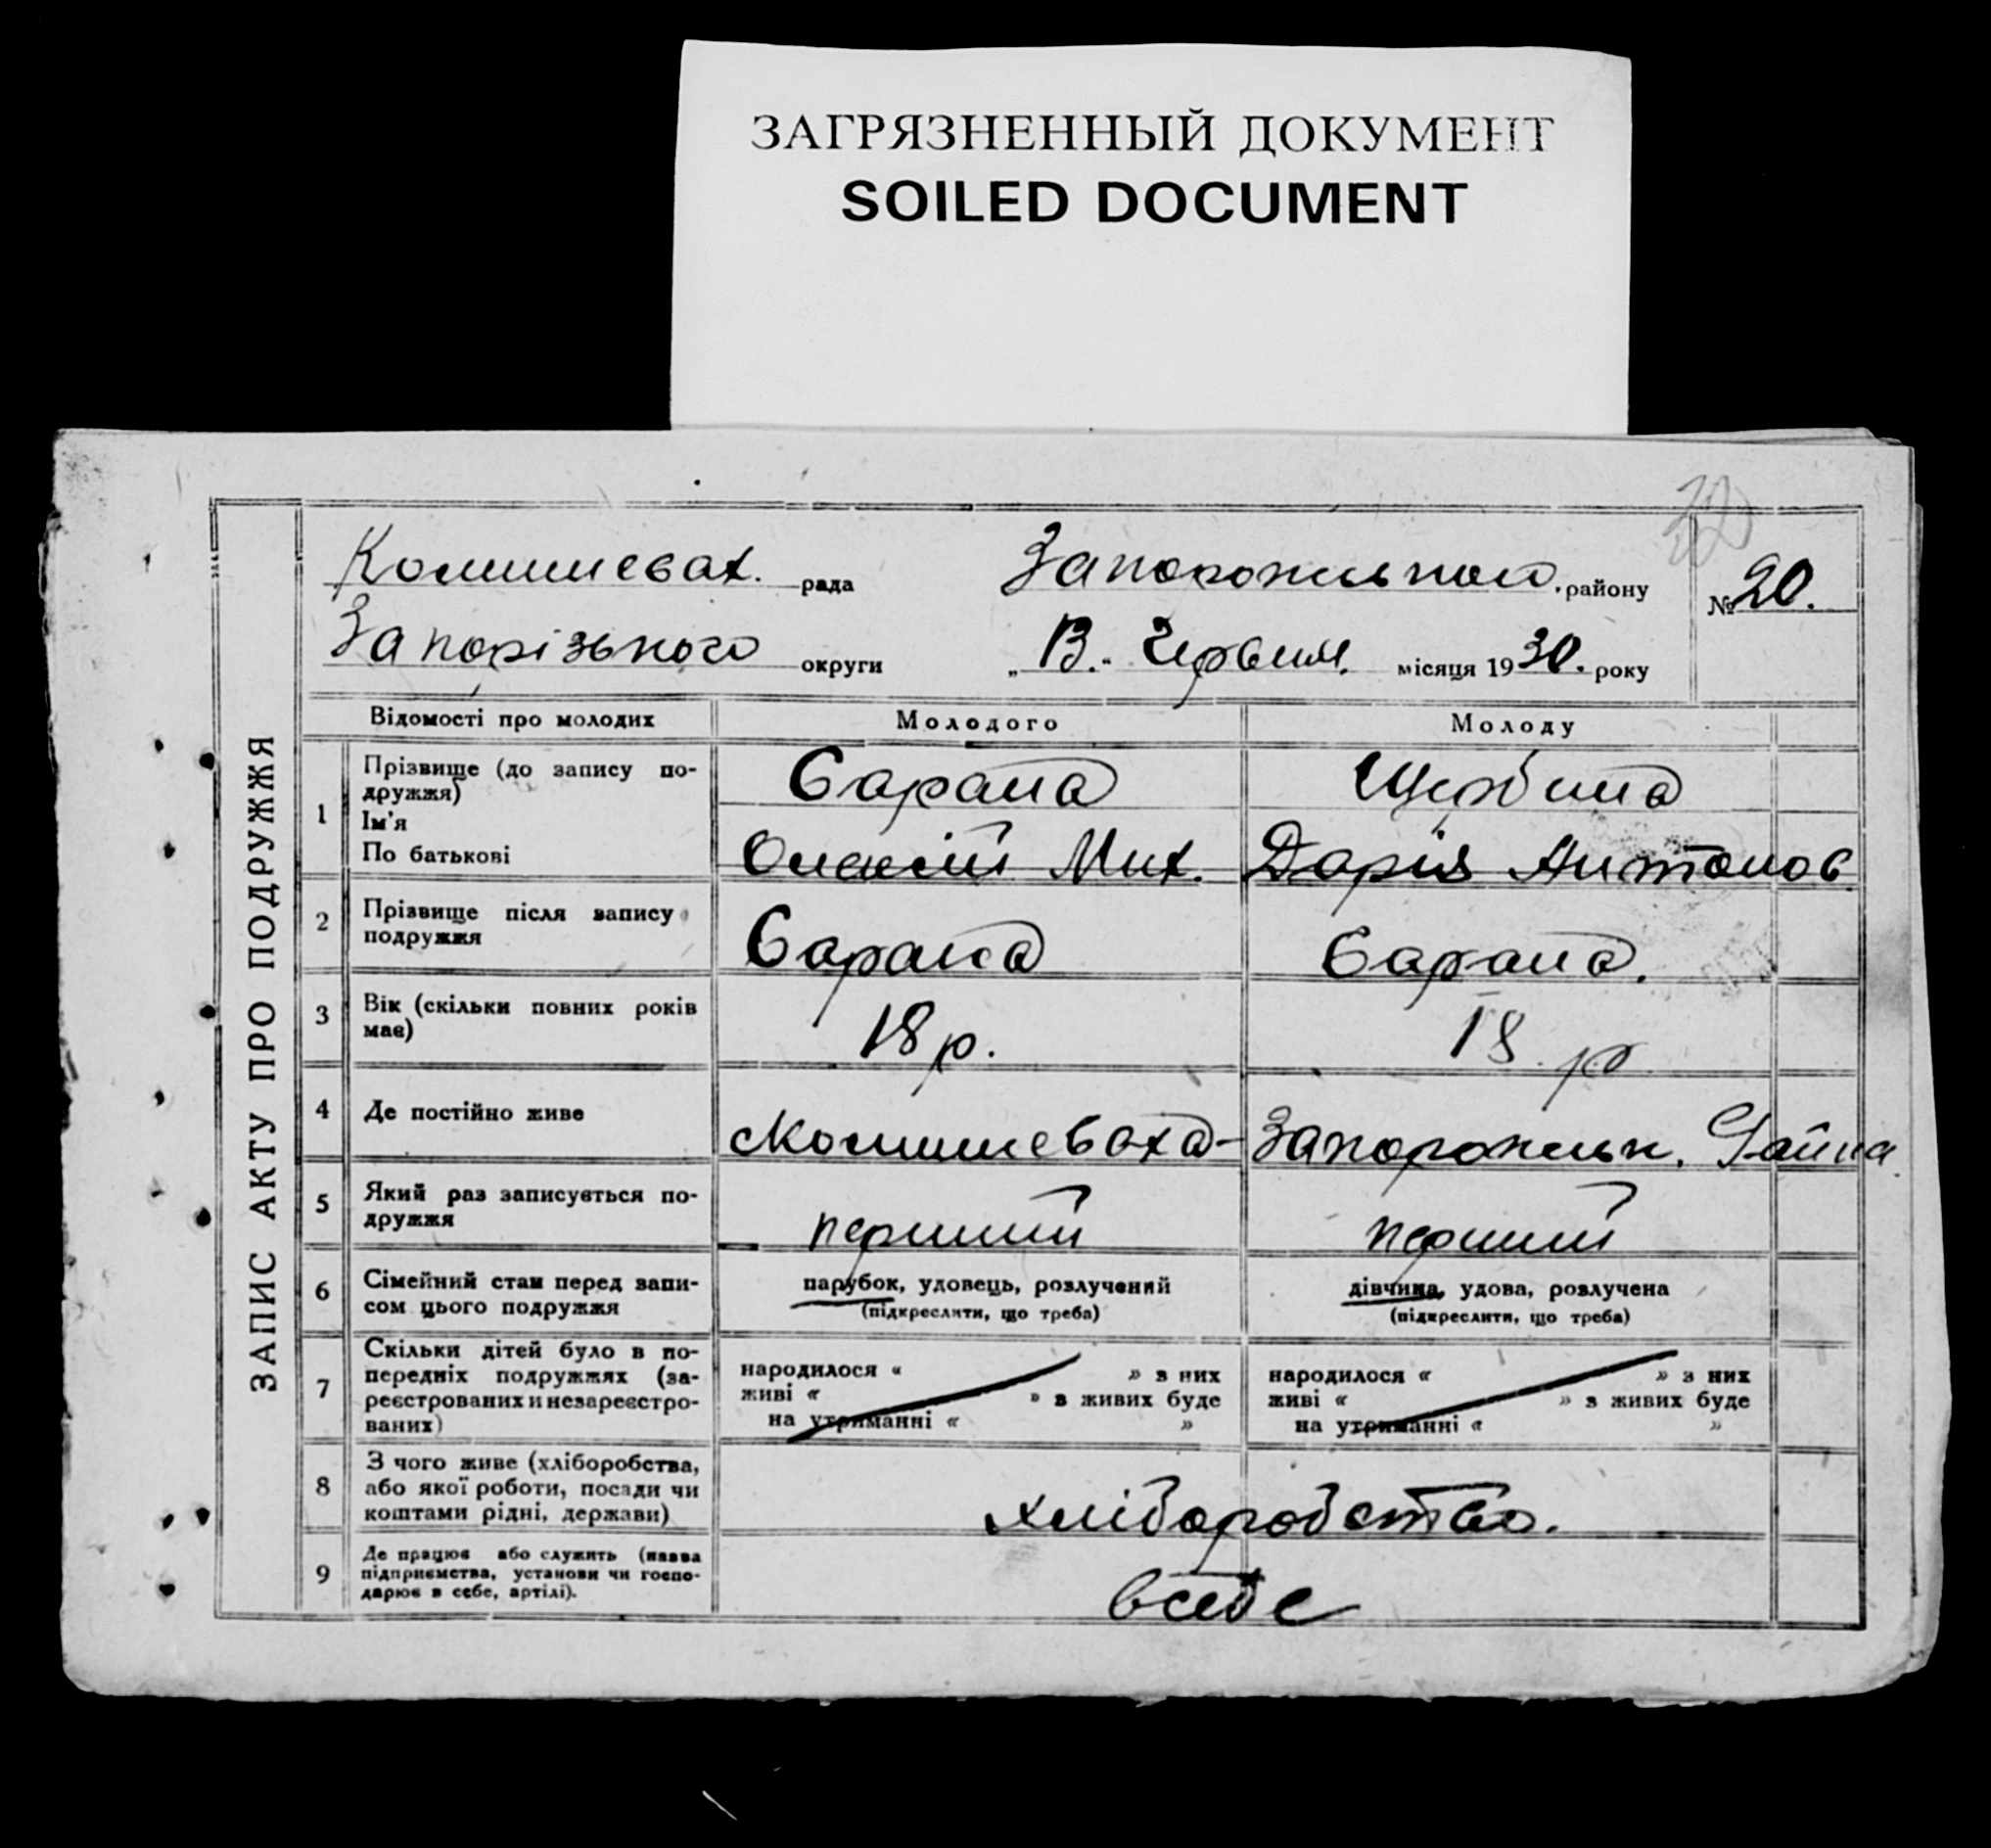 ЗАГРЯЗНЕННЫЙ ДОКУМЕНТ
SOILED DOCUMENT
ЗАПИС АКТУ ПРО ПОДРУЖЖЯ
Комишевах. рада
Запорожського району
№ 20.
Запорізького округи
„ 13.- Червня місяця 1930. року
Відомості про молодих
Молодого
Молоду
1
Прізвище (до запису по-
дружжя)
Ім'я
По батькові
Сарана
Олексій Мих.
Щербина
Дарія Антонов.
2
Прізвище після запису
подружжя
Сарана
Сарана.
3
Вік (скільки повних років
має)
18 р.
18 р
4
Де постійно живе
Комишеваха - Запорожськ. Району
5
Який раз записується по-
дружжя
перший
перший
6
Сімейний стан перед запи-
сом цього подружжя
парубок, удовець, розлучений
(підкреслити, що треба)
дівчина, удова, розлучена
(підкреслити, що треба)
7
Скільки дітей було в по-
передніх подружжях (за-
реєстрованих и незареєстро-
ваних)
народилося « » з них
живі « » з живих буде
на утриманні « »
народилося « » з них
живі « » з живих буде
на утриманні « »
8
З чого живе (хліборобства,
або якої роботи, посади чи
коштами рідні, держави)
хліборобство.
9
Де працює або служить (назва
підприємства, установи чи госпо-
дарює в себе, артілі).
всебе